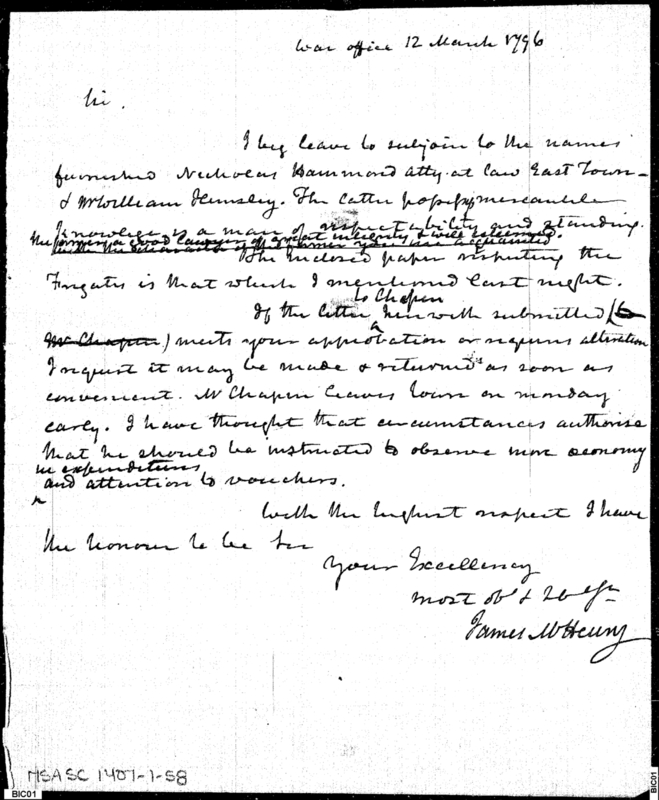 War office 12 March 1796
Sir.
I beg leave to subjoin to the names
furnished Nicholas Hammond atty. at law East Town
& Mr William Hemsley. The latter mercantile
knowlege is a man of respectability and standing.
the former a good lawyer of great integrity & well esteemed.
with the character of the former you are acquainted
The inclosed paper respecting the
Frigates is that which I mentioned last night.
to Chapin
If the letter herewith submitted (to
Mr Chapin) meets your approbation or requires alteration
I request it may be made & returned as soon as
convenient. Mr Chapin leaves town on monday
early. I have thought that circumstances authorise
that he should be instructed to observe more economy
in expenditures
and attention to vouchers.
^
With the highest respect I have
the honour to be Sir
Your Excellency
most obt &
James McHenry
MSA SC 1407-1-58
BIC01
BIC01